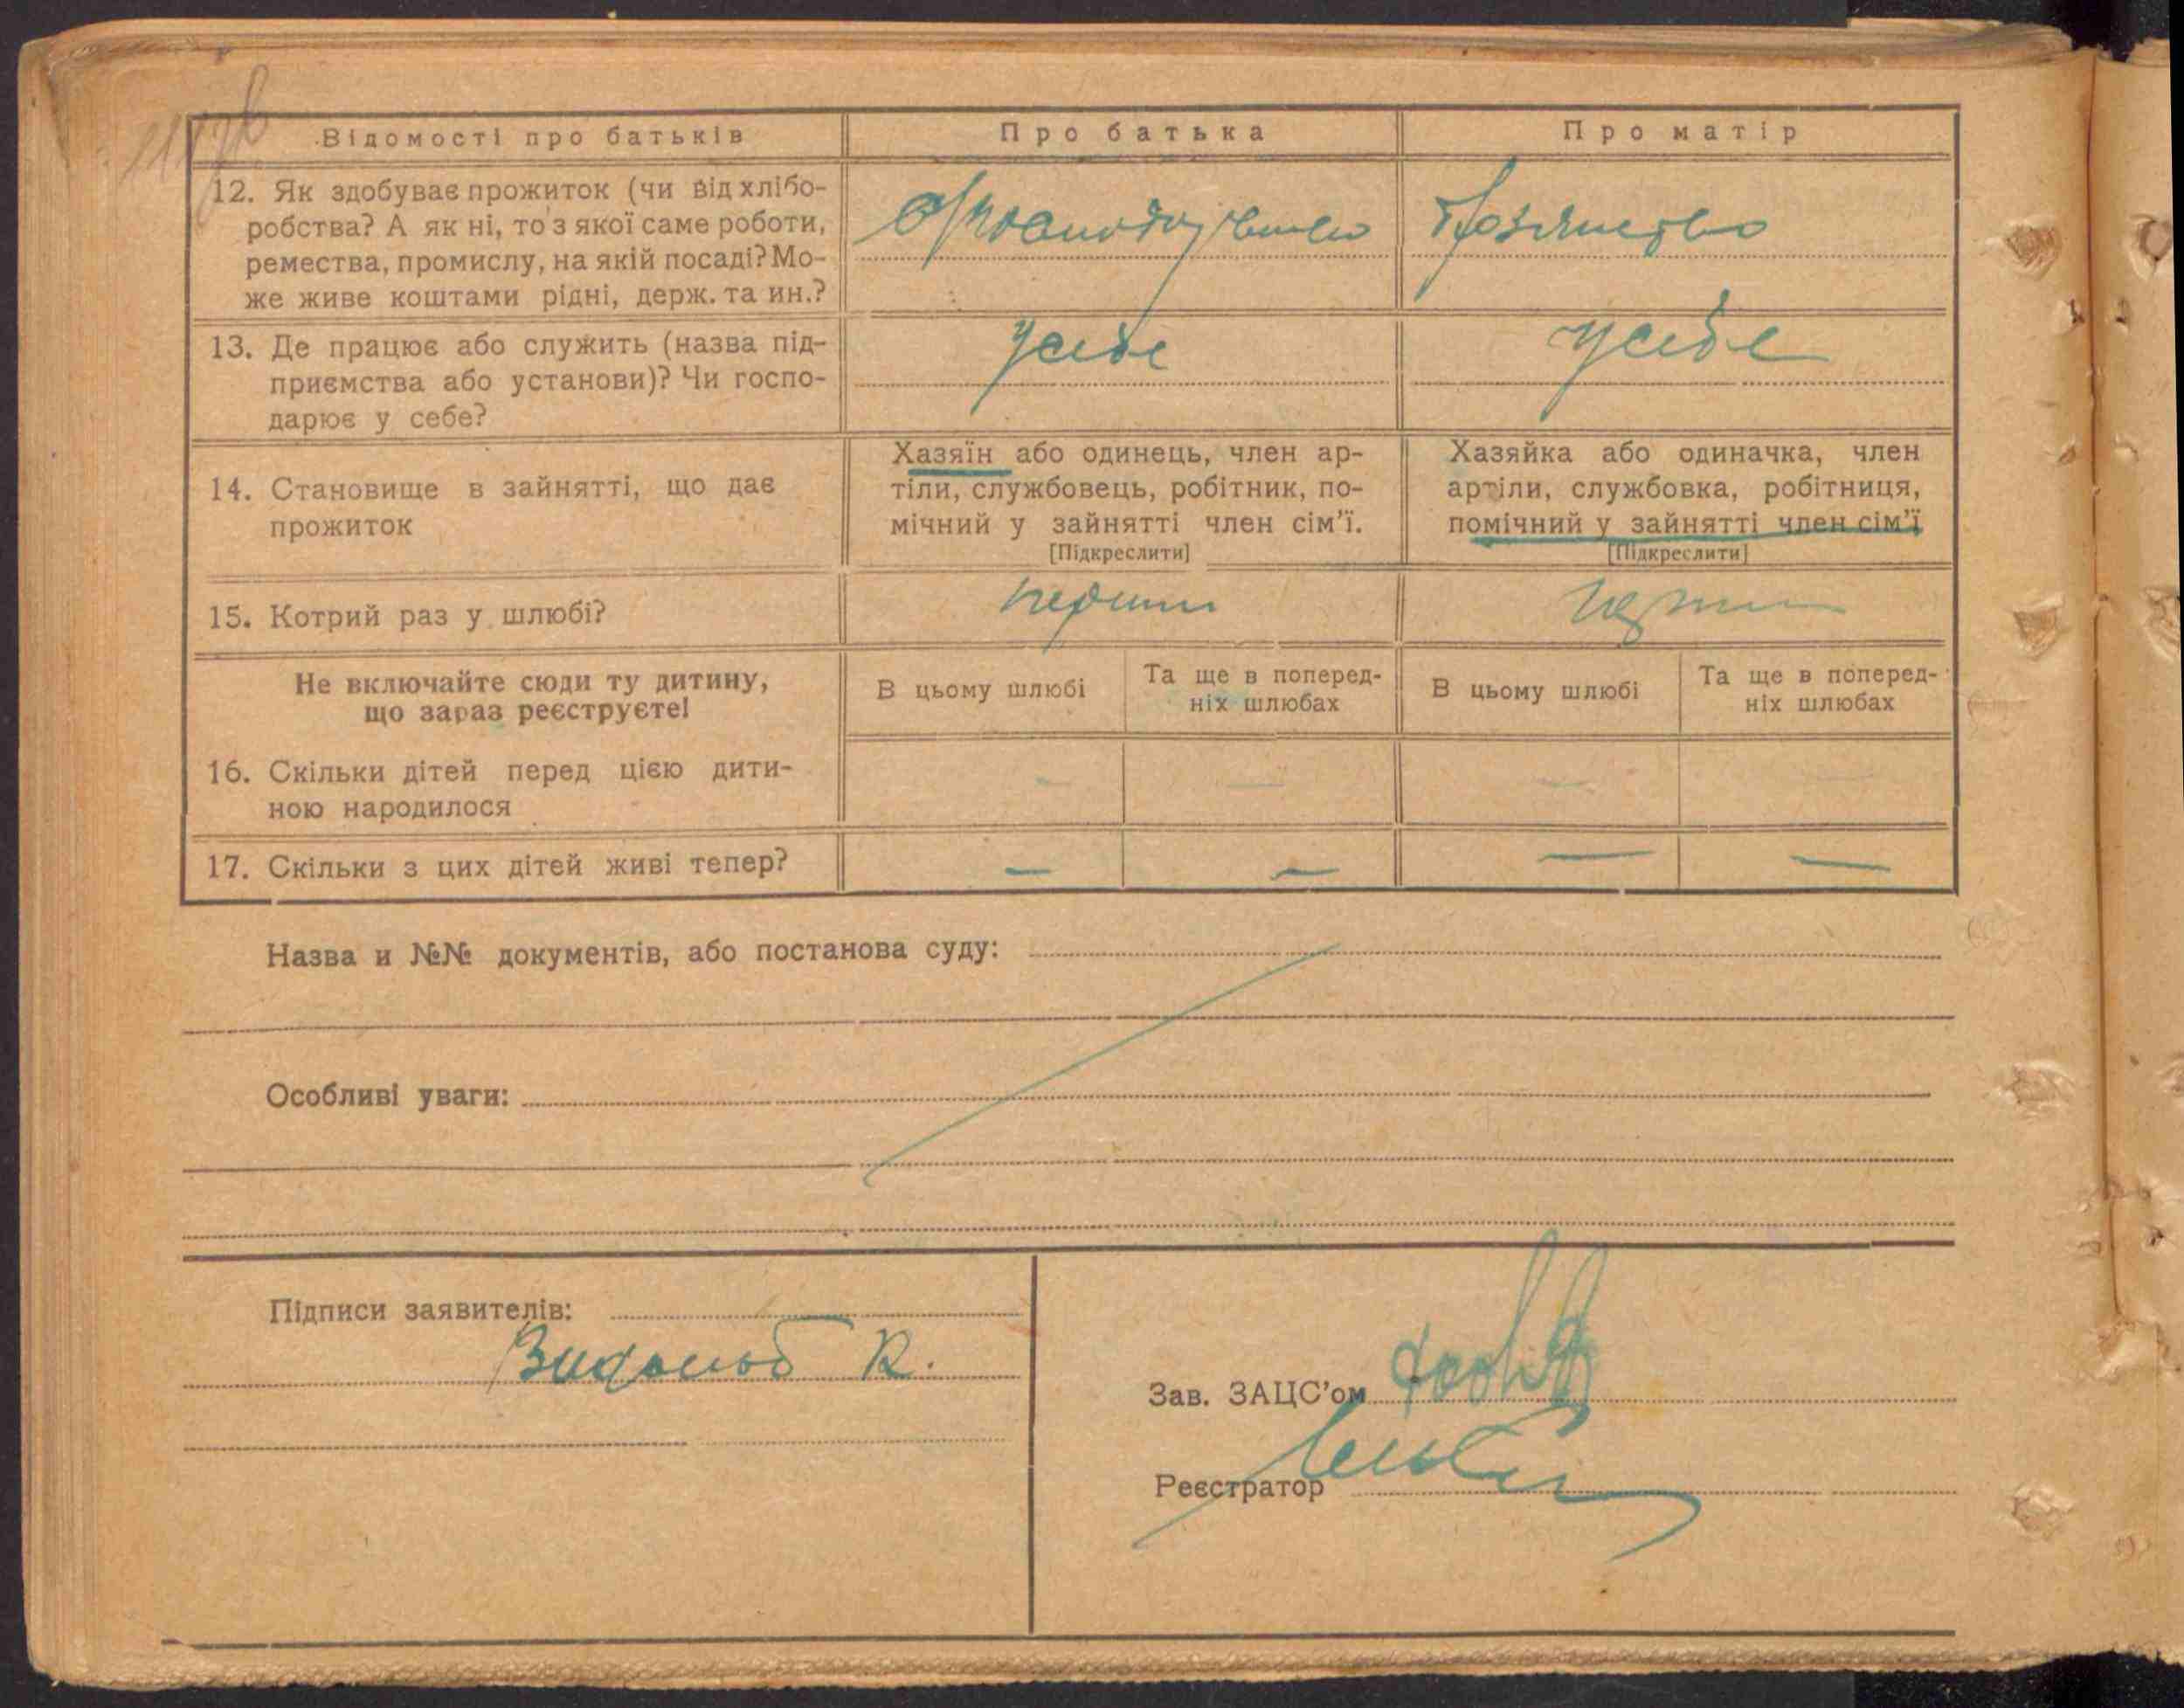 Відомості про батьків
Про батька
Про матір
12. Як здобуває прожиток (чи від хлібо-
робства? А як ні, то з якої саме роботи,
ремества, промислу, на якій посаді? Мо-
же живе коштами рідні, держ. та ин.?
13. Де працює або служить (назва під-
приємства або установи)? Чи госпо-
дарює у себе?
усебе
усебе
14. Становище в зайнятті, що дає
прожиток
Хазяїн або одинець, член ар-
тіли, службовець, робітник, по-
мічний у зайнятті член сім'ї.
[Підкреслити]
Хазяйка або одиначка, член
артіли, службовка, робітниця,
помічний у зайнятті член сім'ї
[Підкреслити]
15. Котрий раз у шлюбі?
Не включайте сюди ту дитину,
що зараз реєструєте!
В цьому шлюбі
Та ще в поперед-
ніх шлюбах
В цьому шлюбі
Та ще в поперед-
ніх шлюбах
16. Скільки дітей перед цією дити-
ною народилося
— — — —
17. Скільки з цих дітей живі тепер?
— — — —
Назва и №№ документів, або постанова суду:
Особливі уваги:
Підписи заявителів:
Зав. ЗАЦС'ом
Реєстратор